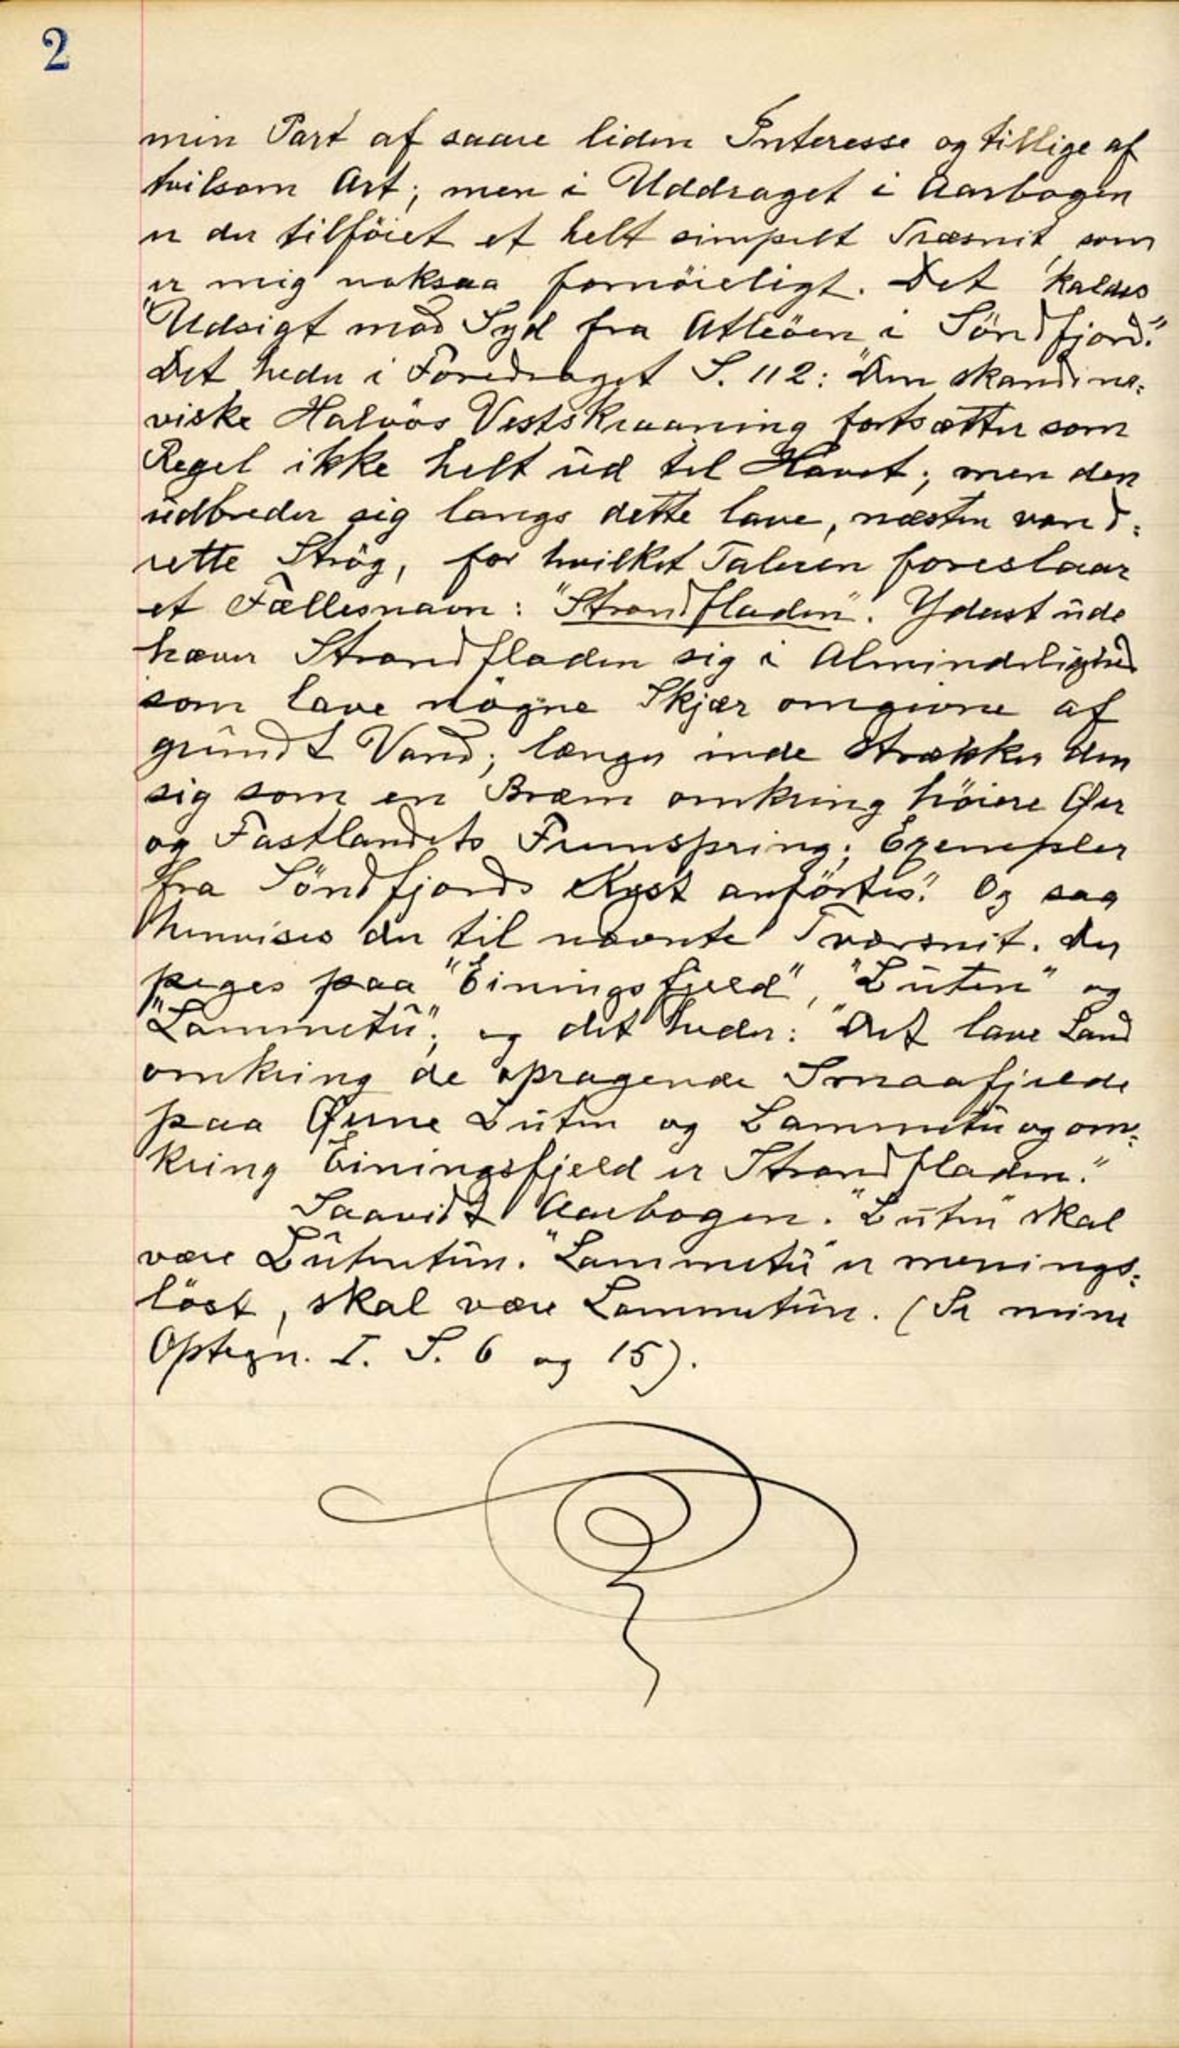 2
min Part af saare liden Interesse og tillige af
tvilsom Art; men i Uddraget i Aarbogen
er der tilföiet et helt simpelt Træsnit, som
er mig noksaa fornöieligt. Det kaldes
"Udsigt mod Syd fra Atleöen i Söndfjord."
Det heder i Foredraget S. 112: "Den skandina=
viske Halvös Vestskraaning fortsætter som
Regel ikke helt ud til Havet; men den
udbreder sig langs dette lave, næsten vand=
rette Strög, for hvilket Taleren foreslaar
et Fællesnavn: "Strandfladen". Yderst ude
hæver Strandfladen sig i Almindelighed
som lave nögne Skjær omgivne af
grundt Vand; længer inde strækker den
sig som en Bræm omkring höiere Øer
og Fastlandets Fremspring; Exempler
fra Söndfjords Kyst anförtes." Og saa
henvises der til nævnte Tværsnit. Der
peges paa "Einingsfjeld", "Luten" og
"Lammetu"; og det heder: "Det lave Land
omkring de opragende Smaafjelde
paa Øerne Luten og Lammetu og om=
kring Einingsfjeld er Strandfladen."
Saavidt Aarbogen. "Luten" skal
være Lutentun. "Lammetu" er menings=
löst, skal være Lammetun. (Se mine
Optegn. I. S. 6 og 15).